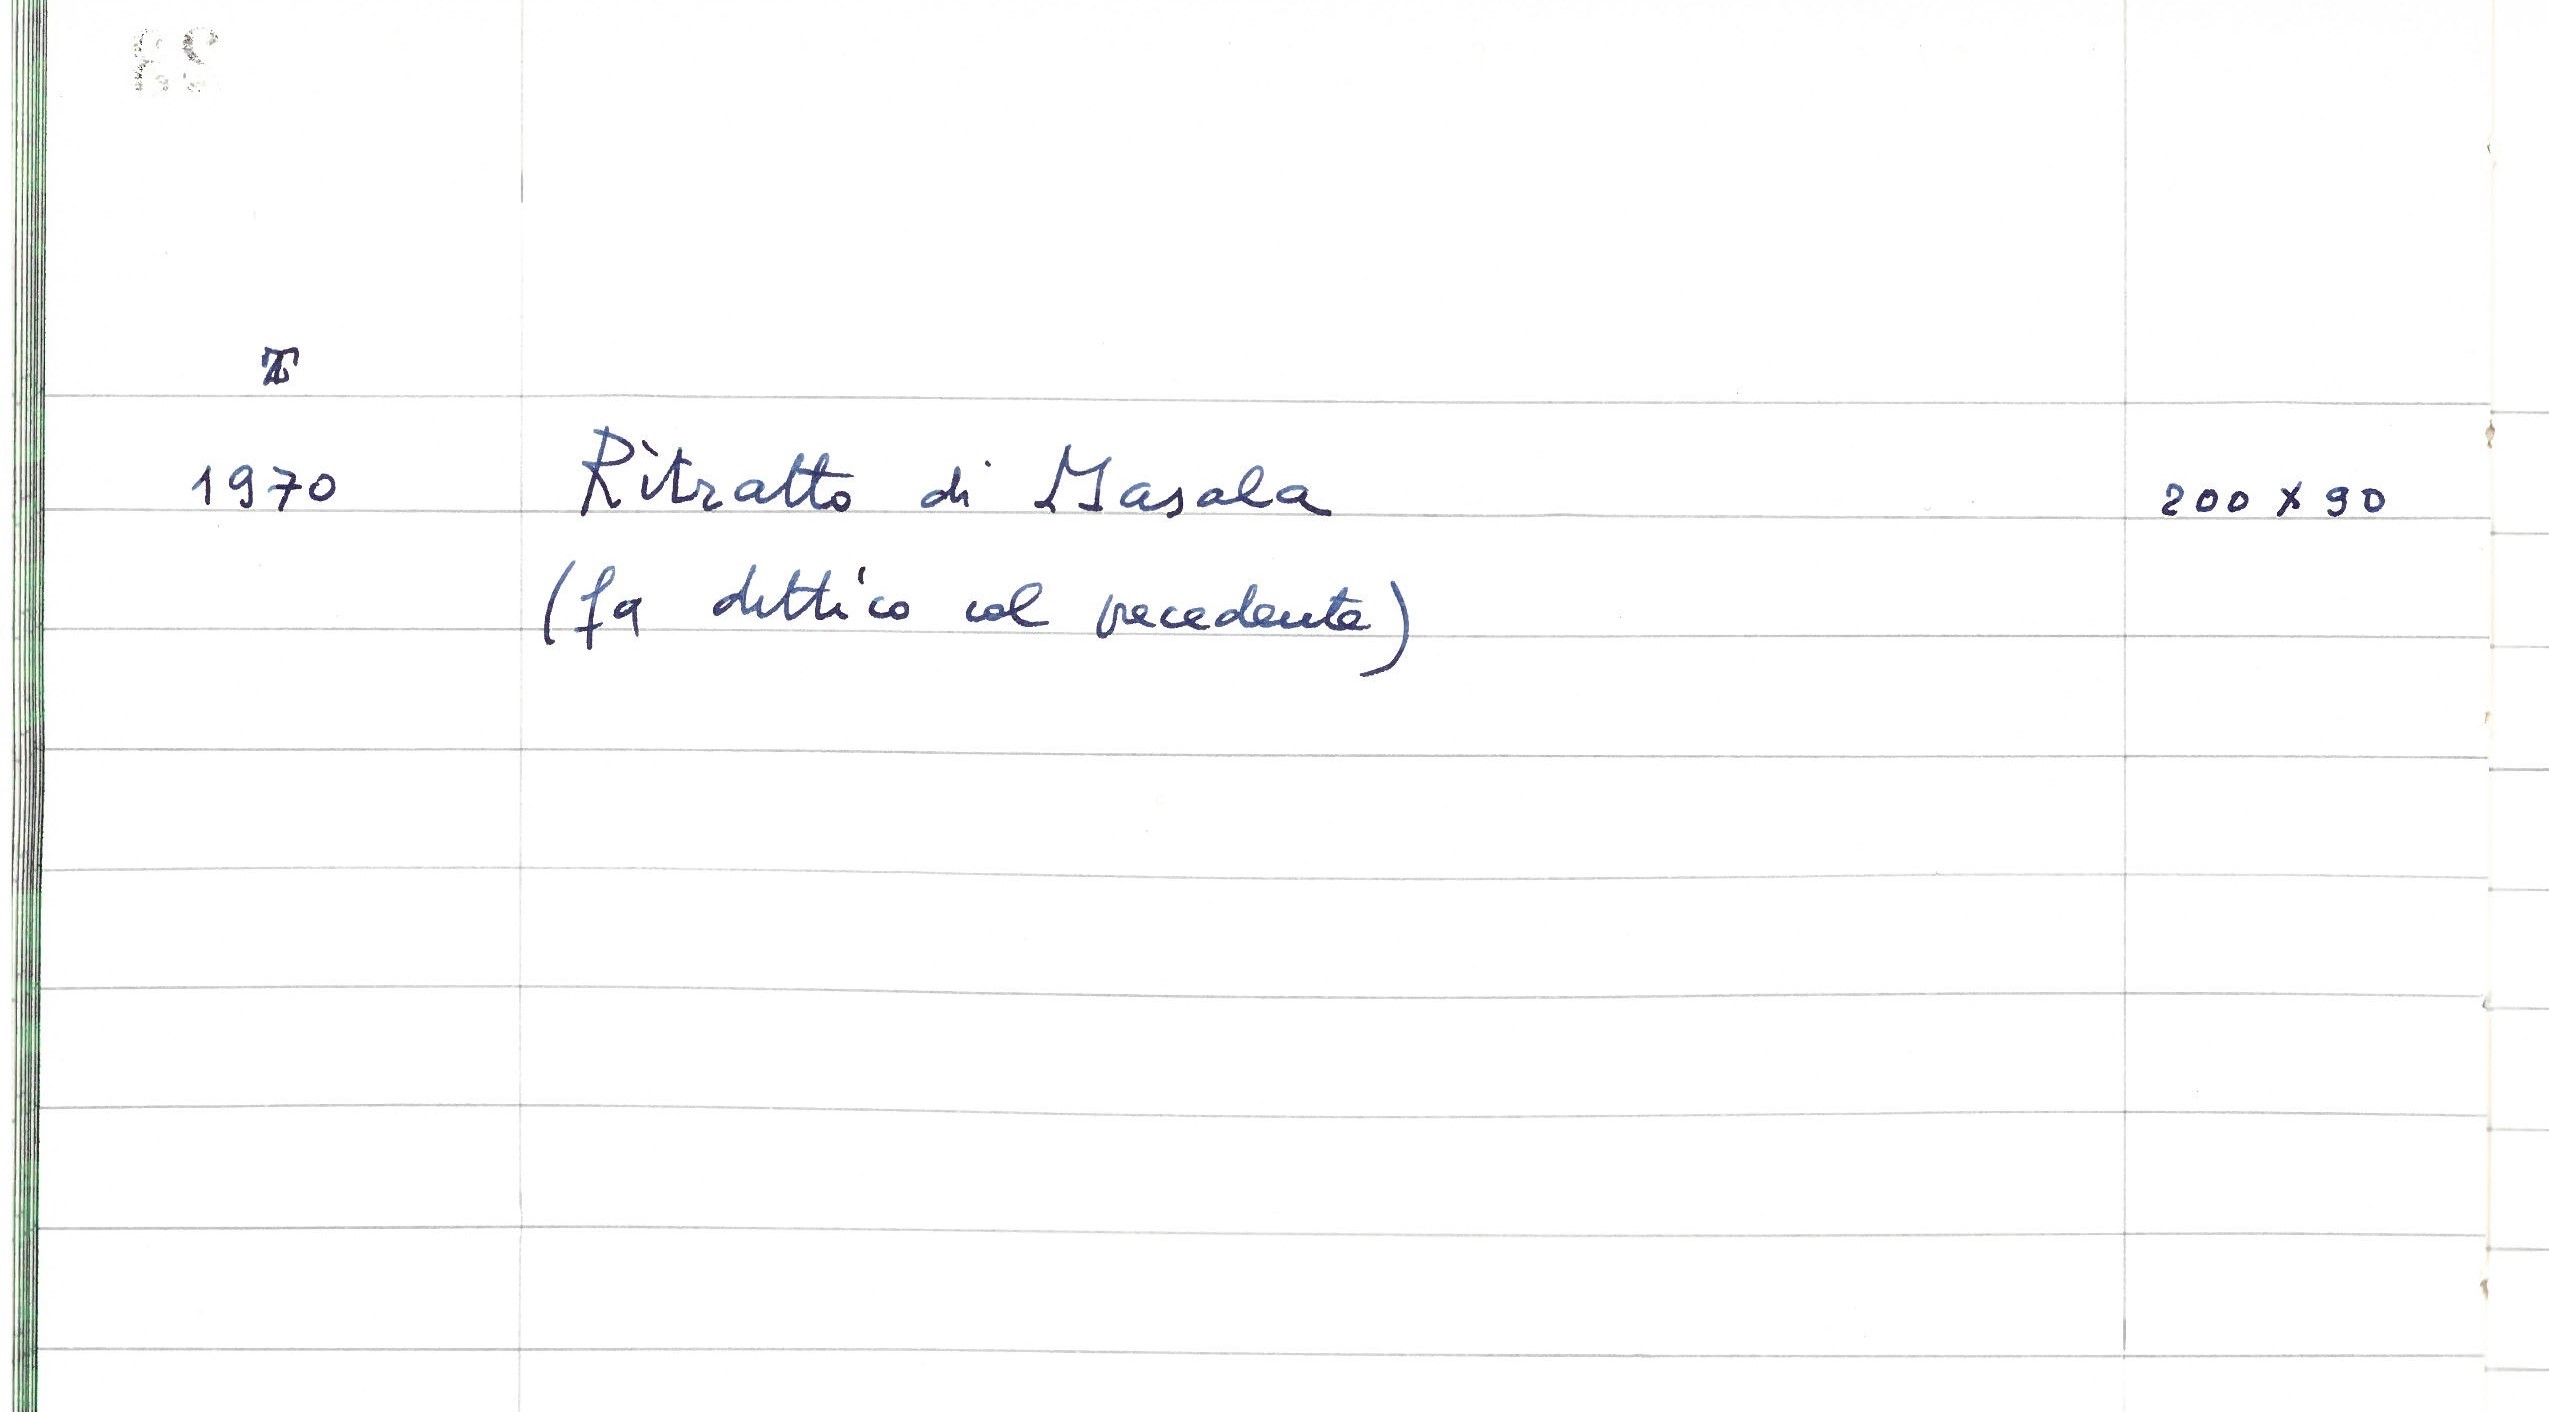 T
1970 Ritratto di Masala 200 x 90
(fa dittico col precedente)